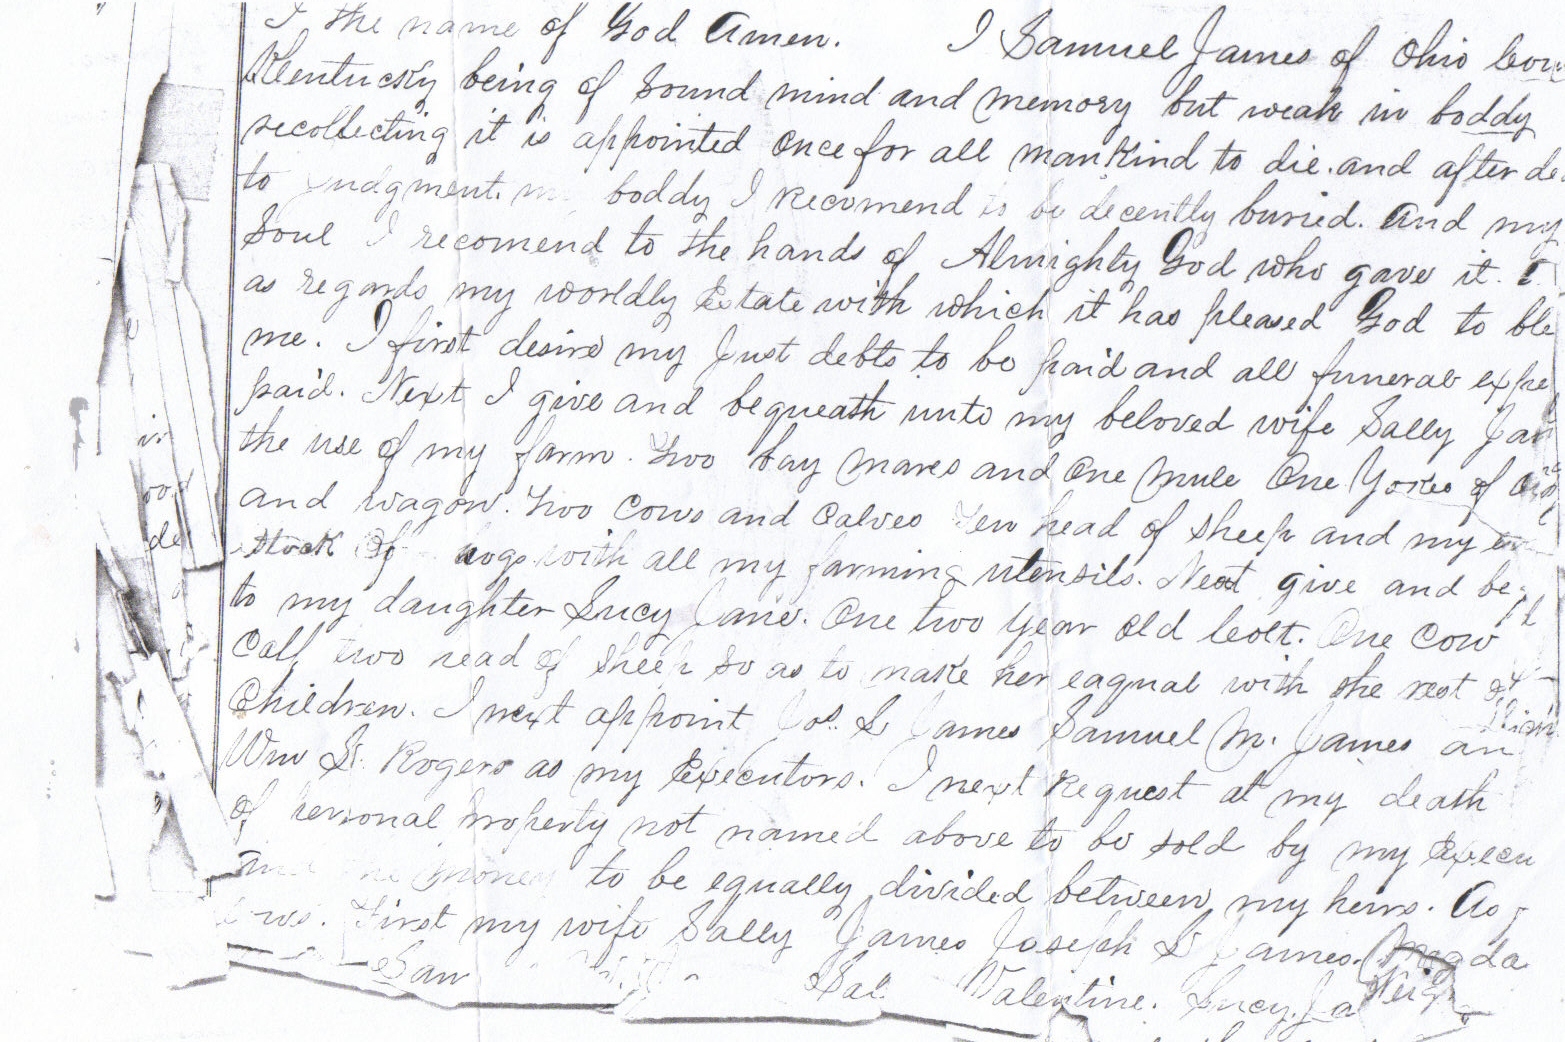 I the name of God Amen. I Samuel James of Ohio Cou
Kentucky being of Sound mind and memory but weak in boddy
recollecting it is appointed Once for all mankind to die. and after de
to judgment. m boddy I recomend to be decently buried. And my
Soul I recomend to the hands of Almighty God who gave it.
as regards my worldly Estate with which it has pleased God to ble
me. I first desire my Just debts to be paid and all funeral expe
paid. Next I give and bequeath unto my beloved wife Sally Jam
the use of my farm. Two bay mares and One Mule One Yoke of
and wagon. Two Cows and Calves Ten head of Sheep and my
stock Of hogs with all my farming utensils. Next give and be
to my daughter Lucy Jane. One two Year Old Colt. One Cow
Calf two head of Sheep So as to make her eaqual with the rest of
Children. I next appoint Jos. S James Samuel M. James an
Wm S. Rogers as my Executors. I next Request at my death
of personal Property not named above to be sold by my Execu
and the money to be equally divided between my heirs. As
First my wife Sally James Joseph S James. Magda
Sam Sal Valentine. Lucy Ja
in
ood
de